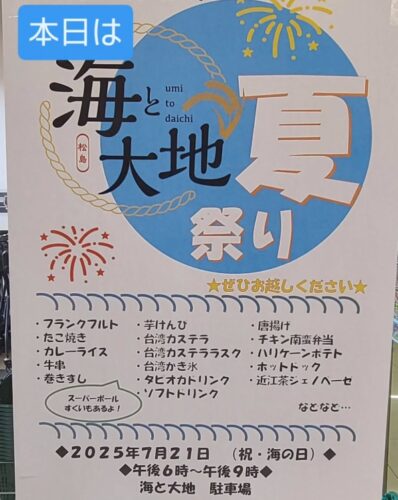 本日は
海と大地
umi
to
daichi
松島
夏
祭り
★ぜひお越しください★
・フランクフルト
・たこ焼き
・カレーライス
・牛串
・巻きすし
スーパーボール
すくいもあるよ！
・芋けんぴ
・台湾カステラ
・台湾カステララスク
・台湾かき氷
・タピオカドリンク
・ソフトドリンク
・唐揚げ
・チキン南蛮弁当
・ハリケーンポテト
・ホットドック
・近江茶ジェノベーゼ
などなど…
◆2025年7月21日 （祝・海の日）◆
◆午後6時～午後9時◆
海と大地 駐車場